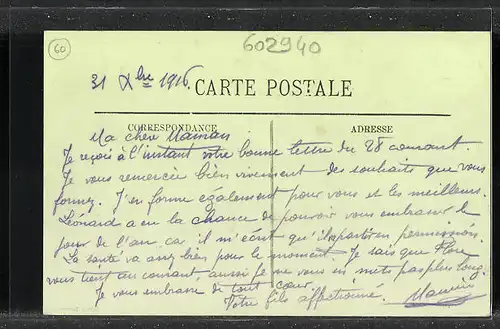 60
602940
31 Xbre 1916.
CARTE POSTALE
CORRESPONDANCE
ADRESSE
Ma chère Maman
Je reçois à l'instant votre bonne lettre du 28 courant.
Je vous remercie bien vivement des souhaits que vous
formez. J'en forme également pour vous et les meilleurs.
Léonard a eu la chance de pouvoir vous embrasser le
jour de l'an car il m'écrit qu'il part en permission.
La santé va assez bien pour le moment. Je sais que Flore
vous tient au courant aussi je ne vous en mets pas plus long.
Je vous embrasse de tout cœur.
Votre fils affectionné.